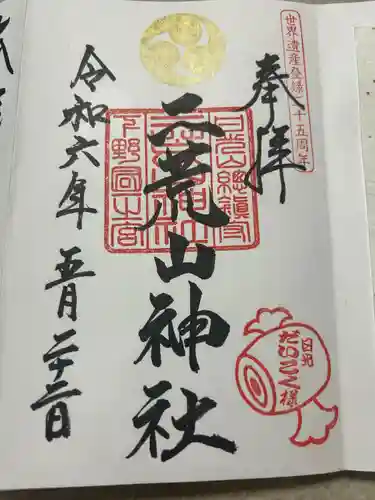 世界遺産登録二十五周年
奉拝
日光山總鎮守
二荒山神社
下野國一之宮
令和六年 五月二十二日
日光
だいこく様